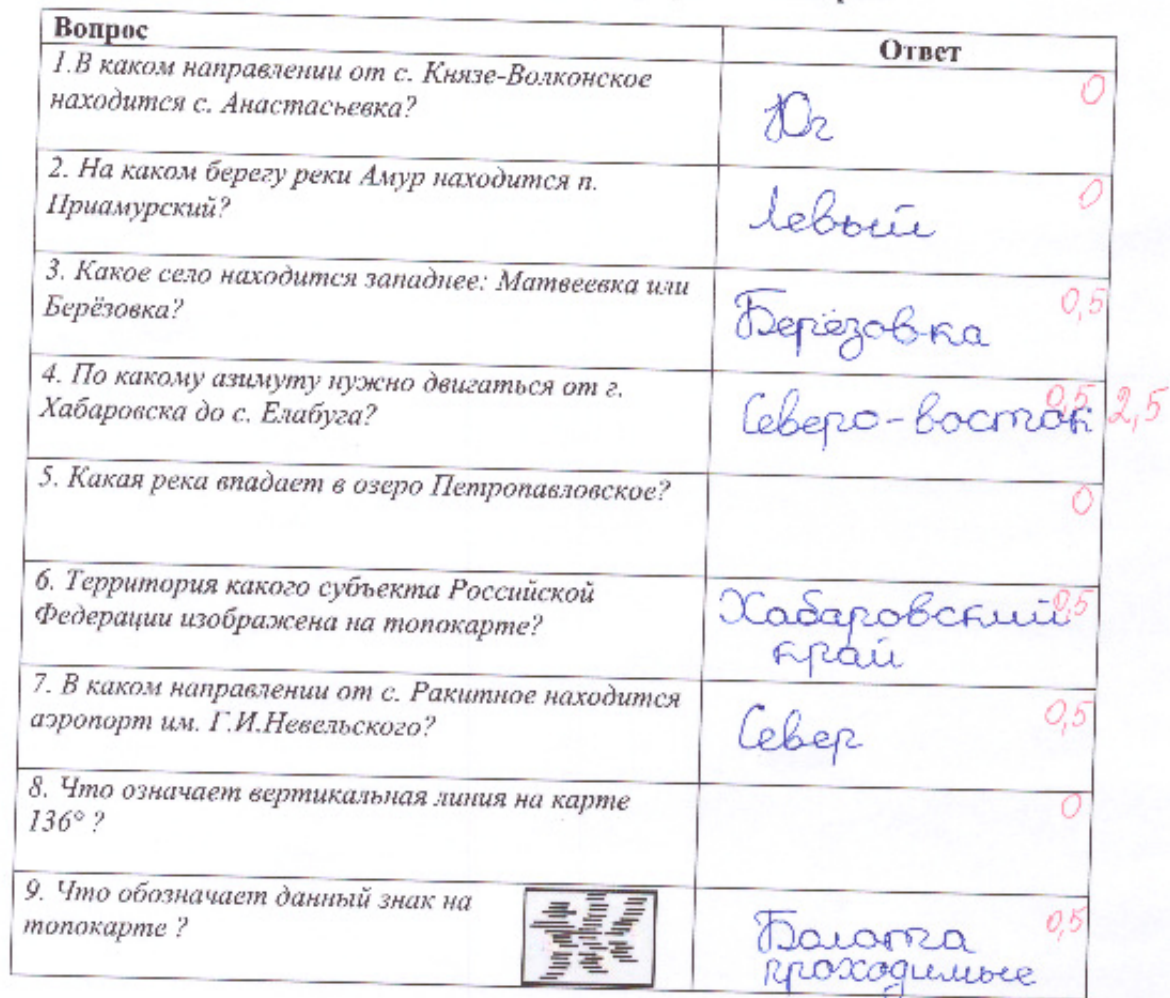 Вопрос
Ответ
1.В каком направлении от с. Князе-Волконское
находится с. Анастасьевка?
Юг
0
2. На каком берегу реки Амур находится п.
Приамурский?
Левый
0
3. Какое село находится западнее: Матвеевка или
Берёзовка?
Берёзовка
0,5
4. По какому азимуту нужно двигаться от г.
Хабаровска до с. Елабуга?
Северо-восток
0,5
2,5
5. Какая река впадает в озеро Петропавловское?
0
6. Территория какого субъекта Российской
Федерации изображена на топокарте?
Хабаровский
край
0,5
7. В каком направлении от с. Ракитное находится
аэропорт им. Г.И.Невельского?
Север
0,5
8. Что означает вертикальная линия на карте
136° ?
0
9. Что обозначает данный знак на
топокарте ?
Болота
проходимые
0,5